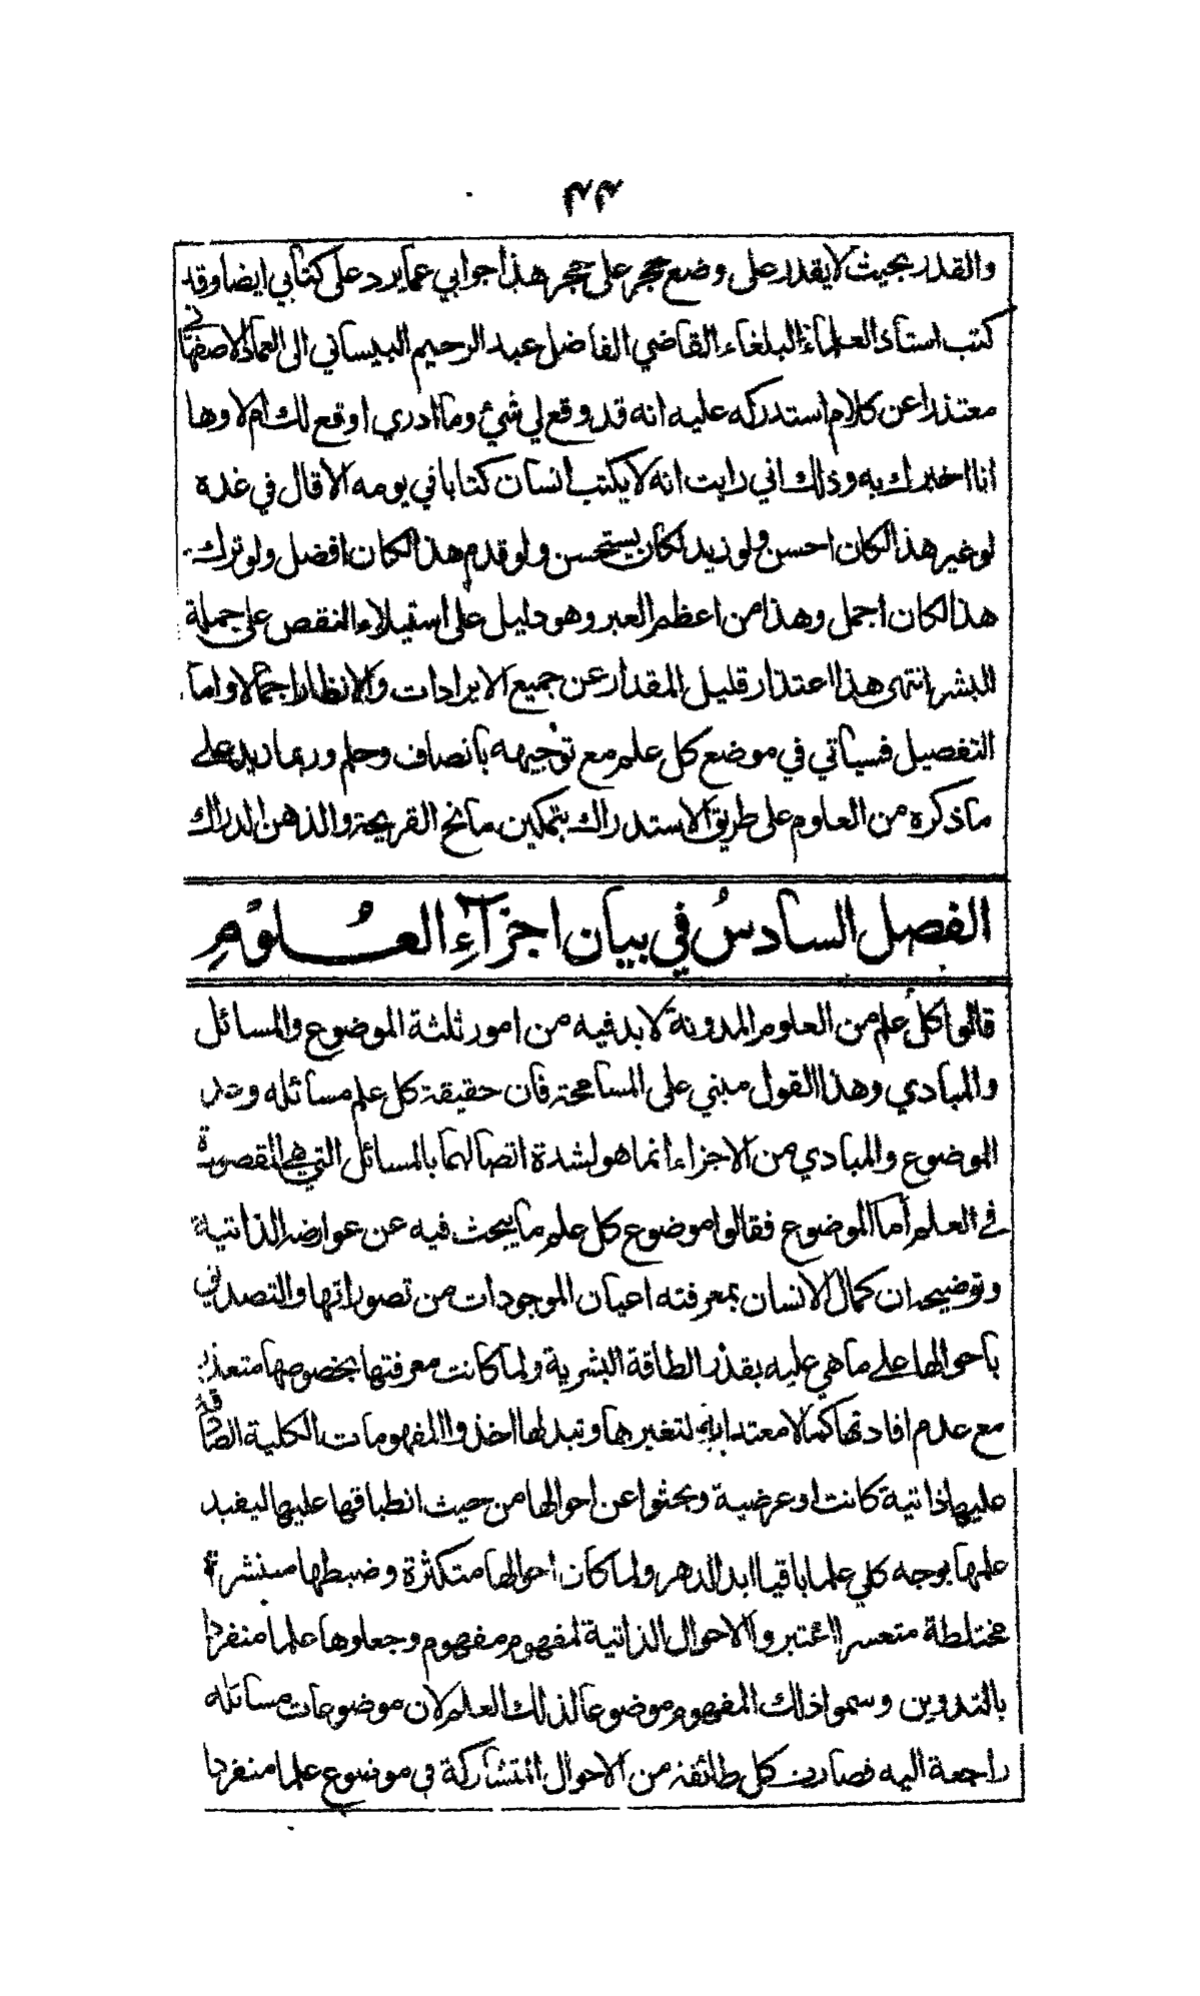 ٤٤
والقدر بحيث لا يقدر على وضع حجر على حجر هذا جوابي عما يرد على كتابي ايضا وقد
كتب استاذ العلماء البلغاء القاضي الفاضل عبد الرحيم البيساني الى العماد الاصفهاني
معتذرا عن كلام استدركه عليه انه قد وقع لي شئ وما ادري اوقع لك ام لا وها
انا اخبرك به وذلك اني رايت انه لا يكتب انسان كتابا في يومه الا قال في غده
لو غير هذا لكان احسن ولو زيد لكان يستحسن ولو قدم هذا لكان افضل ولو ترك
هذا لكان اجمل وهذا من اعظم العبر وهو دليل على استيلاء النقص على جملة
البشر انتهى هذا اعتذار قليل المقدار عن جميع الايرادات والانظار اجمالا واما
التفصيل فسياتي في موضع كل علم مع توجيهه بانصاف وحلم وربما زيد على
ما ذكره من العلوم على طريق الاستدراك بتمكين مانح القريحة والذهن الدراك
الفصل السادسُ في بيان اجزآءِ العُلوُمِ
قالوا كلُ علم من العلوم المدونة لا بد فيه من امور ثلثة الموضوع والمسائل
والمبادي وهذا القول مبني على المسامحة فان حقيقة كل علم مسائله وعد
الموضوع والمبادي من الاجزاء انما هو لشدة اتصالهما بالمسائل التي هي المقصودة
في العلم أما الموضوع فقالوا موضوع كل علم ما يبحث فيه عن عوارضه الذاتية
وتوضيحه ان كمال الانسان بمعرفته اعيان الموجودات من تصوراتها والتصديق
باحوالها على ما هي عليه بقدر الطاقة البشرية ولما كانت معرفتها بخصوصها متعذرة
مع عدم افادتها كمالا معتدا به لتغيرها وتبدلها اخذوا المفهومات الكلية الصادقة
عليها ذاتية كانت او عرضية وبحثوا عن احوالها من حيث انطباقها عليها ليفيد
علمها بوجه كلي علما باقيا ابد الدهر ولما كان احوالها متكثرة وضبطها منتشرة
مختلطة متعسرا اعتبروا الاحوال الذاتية لمفهوم مفهوم وجعلوها علما منفردا
بالتدوين وسموا ذلك المفهوم موضوعا لذلك العلم لان موضوعات مسائله
راجعة اليه فصارت كل طائفة من الاحوال المتشاركة في موضوع علما منفردا